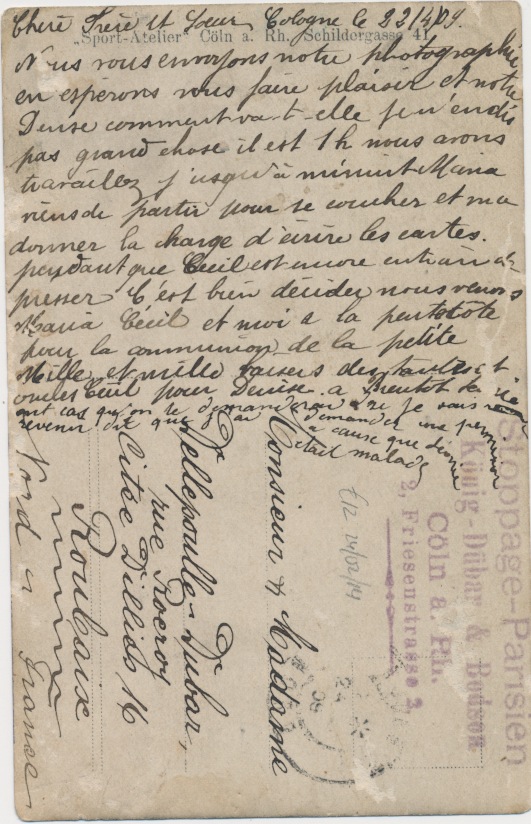 Chere Frère et Soeur Cologne le 22/4/09.
„Sport-Atelier" Cöln a. Rh. Schildergasse 41
Nous vous envoyons notre photographie
en esperons vous faire plaisir et notre
Denise comment va-t-elle je n'en dis
pas grand chose il est 1h nous avons
travaillez jusqu'à minuit Maria
viens de partir pour se coucher et ma
donner la charge d'écrire les cartes.
pendant que Cécil est encore entrain de
presser C'est bien decider nous venons
Maria Cécil et moi a la pentecote
pour la communion de la petite
Mille et mille baisers des tantes et
oncles Cécil pour Denise. a Bientot
cas qu'on te demanderai je suis
revenir dit que j'ai demander une permission
a cause que
etait malade
Monsieur & Madame
Dellepoulle-Dubar,
rue Rocroy
Citée Dillies 16
Roubaix
Nord
France
Stoppage-Parisien
König-Dubar & Budson
Cöln a. Rh.
2, Friesenstrasse 2,